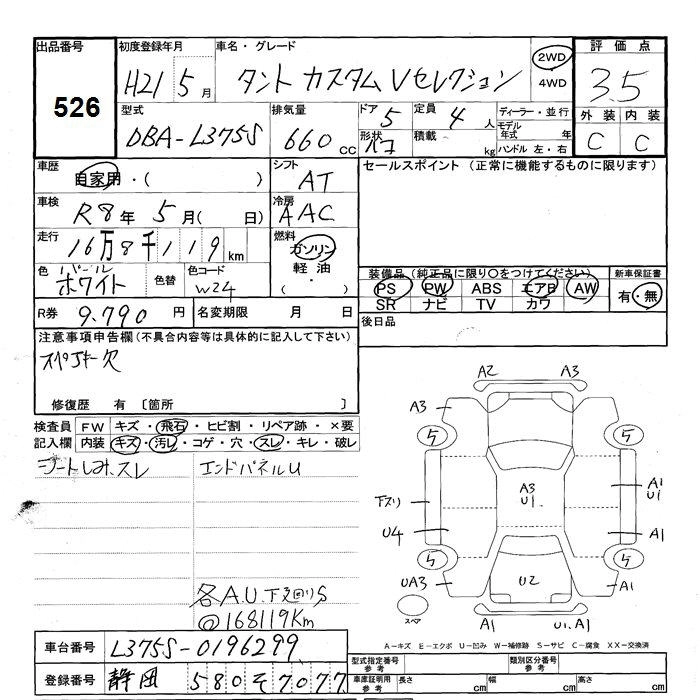 出品番号 初度登録年月 車名・グレード 2WD 評価点
526 H21 5月 タント カスタム Vセレクション 4WD 3.5
型式 排気量 ドア 5 定員 4人 ディーラー・並行 外装 内装
DBA-L375S 660cc 形状 積載 kg モデル年式 年 C C
ハンドル 左・右
車歴 シフト セールスポイント (正常に機能するものに限ります)
自家用・( ) AT
車検 R8年5月( 日) 冷房 AAC
走行 16万8千119km 燃料 ガソリン
軽油
・( )
色 パール ホワイト 色替 色コード W24
装備品(純正品に限り○をつけてください) 新車保証書
PS PW ABS エアB AW 有・無
SR ナビ TV カワ
R券 9.790円 名変期限 月 日 後日品
注意事項申告欄(不具合内容等は具体的に記入して下さい)
スペアキー欠
修復歴 有 〔箇所 〕
検査員 FW キズ・飛石・ヒビ割・リペア跡・×要
記入欄 内装 キズ・汚レ・コゲ・穴・スレ・キレ・破レ
シートしみ、スレ エンドパネルU
A2 A3
A3
5 5
A3 U1.
下スリ A1 U1
U4 A1
5 5
UA3 U2 A1
スペア A1 U1.A1
各A.U.下廻りS
@168119Km
A-キズ E-エクボ U-凹み W-補修跡 S-サビ C-腐食 XX-交換済
車台番号 L375S-0196299
型式指定番号 参考 類別区分番号 参考
登録番号 静岡 580 そ 7077
車庫証明用 参考 長さ cm 幅 cm 高さ cm